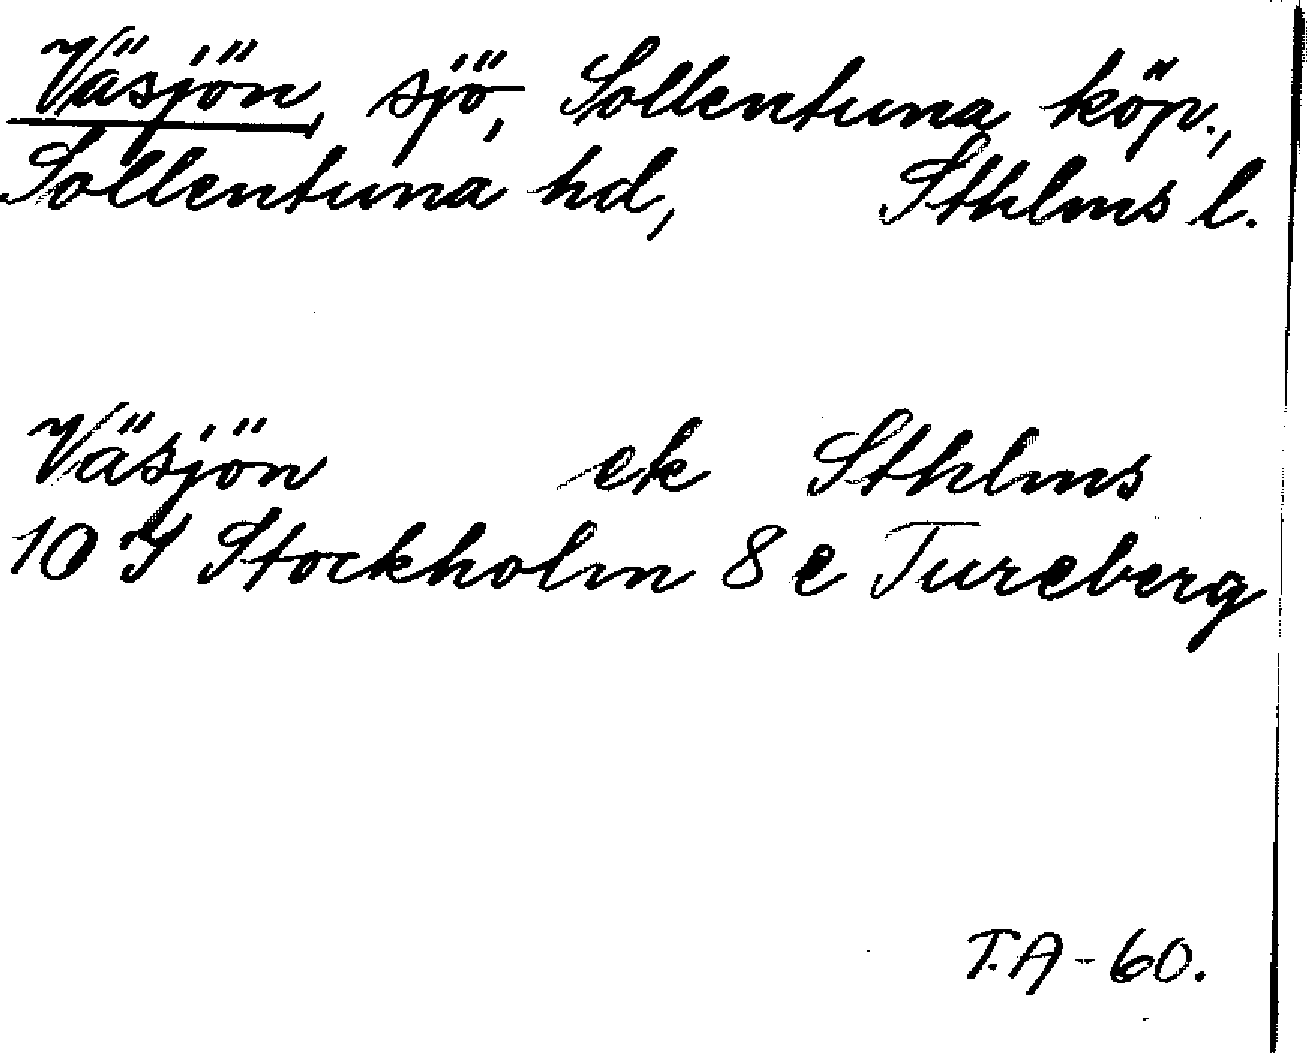 Väsjön, sjö, Sollentuna köp.,
Sollentuna hd, Sthlms l.
Väsjön ek Sthlms
10 I Stockholm 8 e Tureberg
T.A-60.